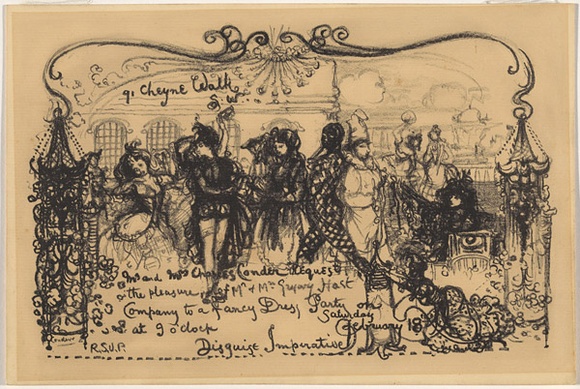 91 Cheyne Walk
S.W.
Mr and Mrs Charles Conder Request
the pleasure of Mr & Mrs Gregory Hast
Company to a Fancy Dress Party on
Saturday
at 9 o'clock February 18
R.S.V.P. Disguise Imperative